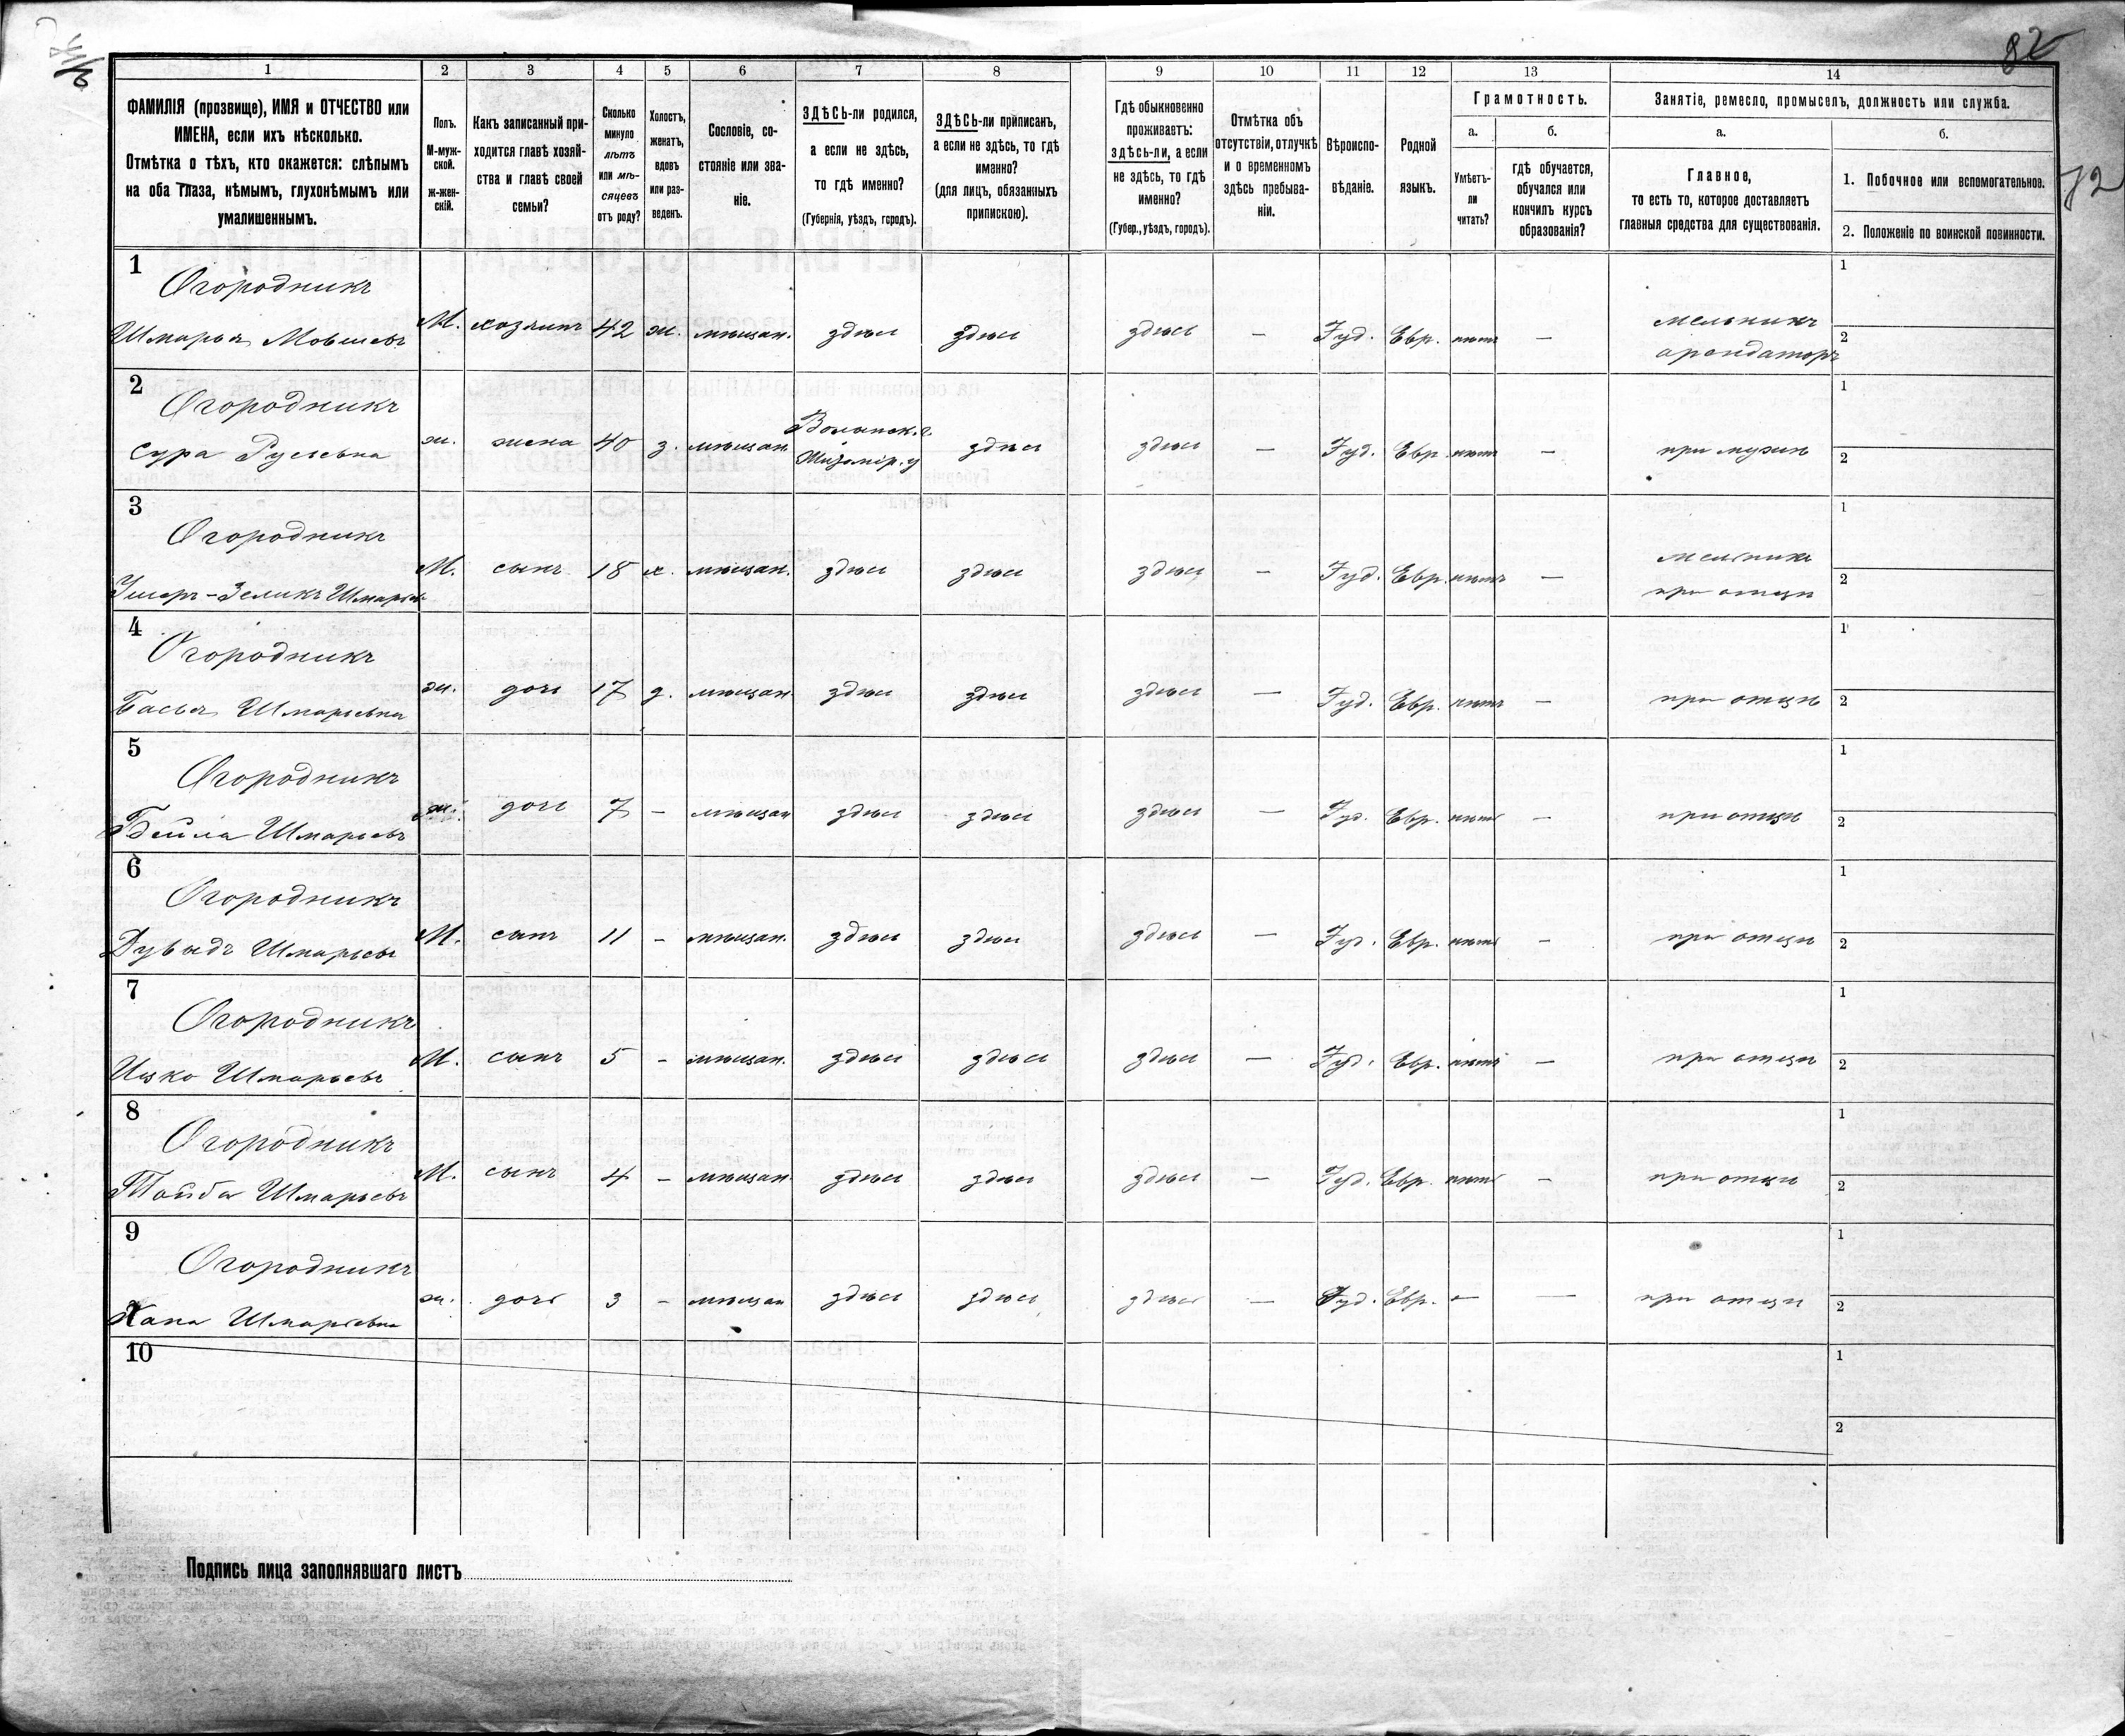 82
72
1 2 3 4 5 6 7 8 9 10 11 12 13 14
ФАМИЛІЯ (прозвище), ИМЯ и ОТЧЕСТВО или
ИМЕНА, если ихъ нѣсколько.
Отмѣтка о тѣхъ, кто окажется: слѣпымъ
на оба глаза, нѣмымъ, глухонѣмымъ или
умалишеннымъ.
Полъ.
М-муж-
ской.
ж-жен-
скій.
Какъ записанный при-
ходится главѣ хозяй-
ства и главѣ своей
семьи?
Сколько
минуло
лѣтъ
или мѣ-
сяцевъ
отъ роду?
Холостъ,
женатъ,
вдовъ
или раз-
веденъ.
Сословіе, со-
стояніе или зва-
ніе.
ЗДѢСЬ-ли родился,
а если не здѣсь,
то гдѣ именно?
(Губернія, уѣздъ, городъ).
ЗДѢСЬ-ли приписанъ,
а если не здѣсь, то гдѣ
именно?
(для лицъ, обязанныхъ
припискою).
Гдѣ обыкновенно
проживаетъ:
здѣсь-ли, а если
не здѣсь, то гдѣ
именно?
(Губер., уѣздъ, городъ).
Отмѣтка объ
отсутствіи, отлучкѣ
и о временномъ
здѣсь пребыва-
ніи.
Вѣроиспо-
вѣданіе.
Родной
языкъ.
Грамотность.
а.
Умѣетъ-
ли
читать?
б.
гдѣ обучается,
обучался или
кончилъ курсъ
образованія?
Занятіе, ремесло, промыселъ, должность или служба.
а.
Главное,
то есть то, которое доставляетъ
главныя средства для существованія.
б.
1. Побочное или вспомогательное.
2. Положеніе по воинской повинности.
1
Огородникъ
Шмарья Мовшевъ М. хозяинъ 42 ж. мѣщан. здѣсь здѣсь здѣсь — Іуд. Евр. нѣтъ — мельникъ
арендаторъ
1
2
2
Огородникъ
Сура ж. жена 40 з. мѣщан. Волынск. г.
Житомір. у здѣсь здѣсь — Іуд. Евр. нѣтъ — при мужѣ
1
2
3
Огородникъ
Ушеръ-Зеликъ Шмарьев. М. сынъ 18 х. мѣщан. здѣсь здѣсь здѣсь — Іуд. Евр. нѣтъ — мельникъ
при отцѣ
1
2
4
Огородникъ
Басья Шмарьевна ж. дочь 17 д. мѣщан. здѣсь здѣсь здѣсь — Іуд. Евр. нѣтъ — при отцѣ
1
2
5
Огородникъ
Бейла Шмарьевъ ж. дочь 7 — мѣщан здѣсь здѣсь здѣсь — Іуд. Евр. нѣтъ — при отцѣ
1
2
6
Огородникъ
Дувыдъ Шмарьевъ М. сынъ 11 — мѣщан. здѣсь здѣсь здѣсь — Іуд. Евр. нѣтъ — при отцѣ
1
2
7
Огородникъ
Ицко Шмарьевъ М. сынъ 5 — мѣщан. здѣсь здѣсь здѣсь — Іуд. Евр. нѣтъ — при отцѣ
1
2
8
Огородникъ
Тойба Шмарьевъ М. сынъ 4 — мѣщан. здѣсь здѣсь здѣсь — Іуд. Евр. нѣтъ — при отцѣ
1
2
9
Огородникъ
Хана Шмарьевна ж. дочь 3 — мѣщан здѣсь здѣсь здѣсь — Іуд. Евр. — — при отцѣ
1
2
10
1
2
Подпись лица заполнявшаго листъ